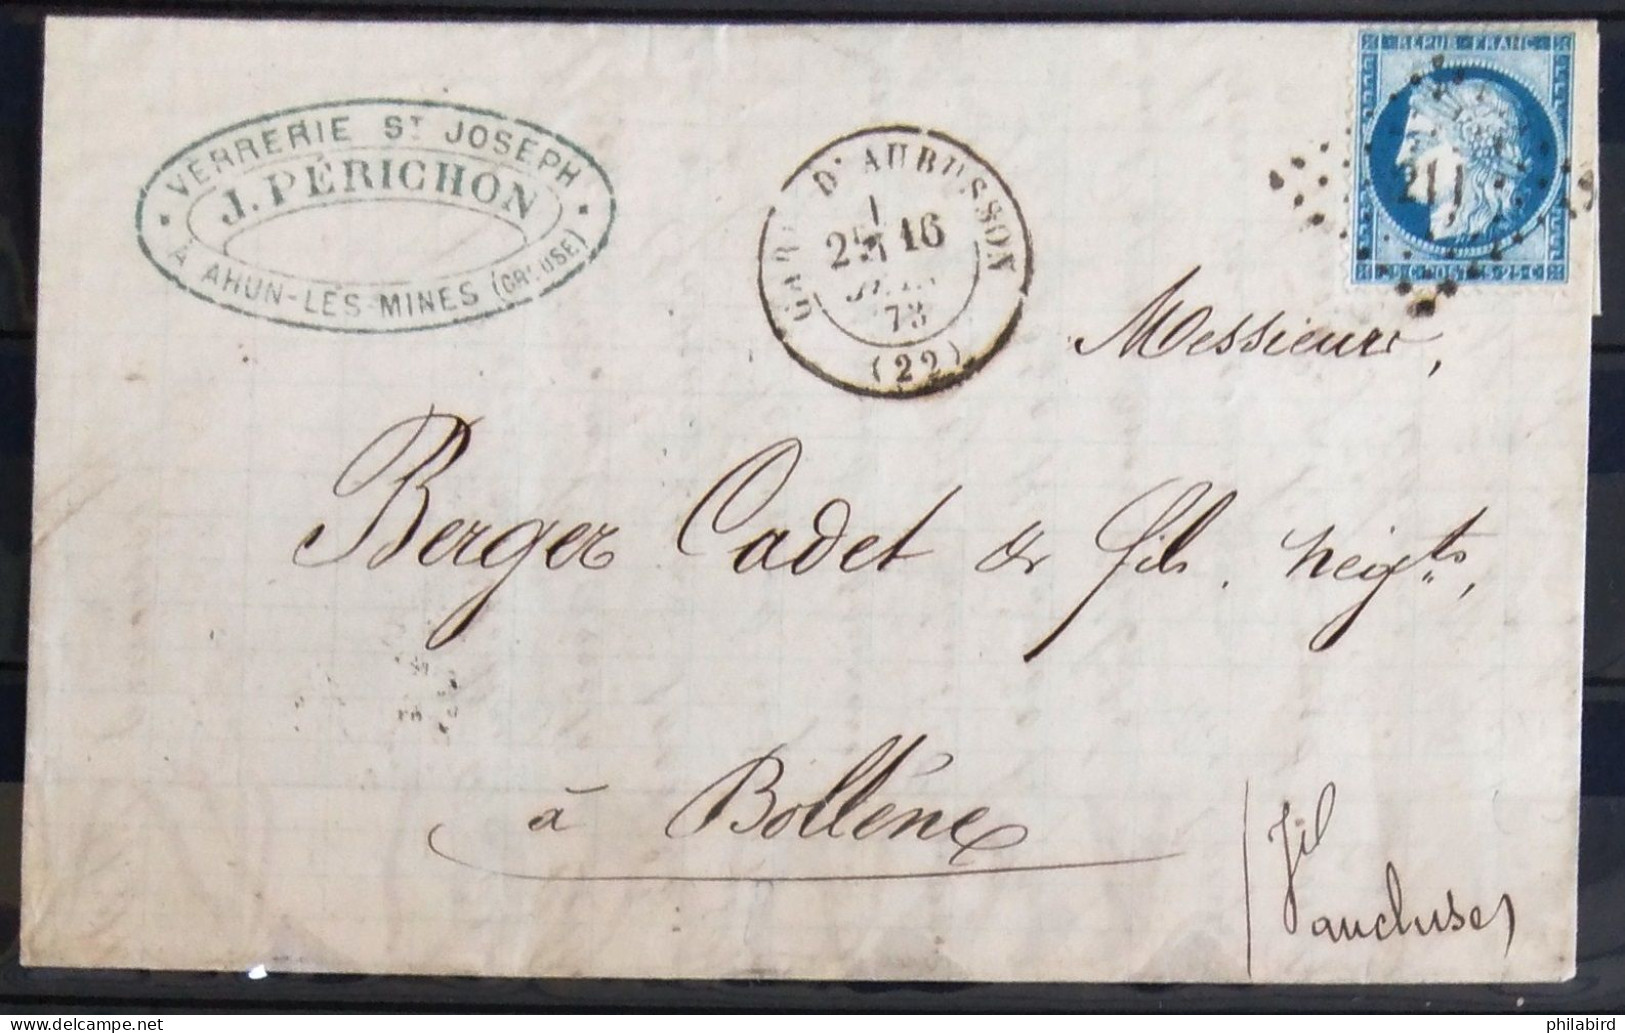 VERRERIE ST JOSEPH
J. PÉRICHON
À AHUN-LES-MINES (CREUSE)
D'AUBUSSON
16
73
(22)
REPUB FRANC
211
25 C POSTES 25 C
Messieurs,
Berger Cadet & fils. négts,
à Bollène
Vaucluse)
philabird